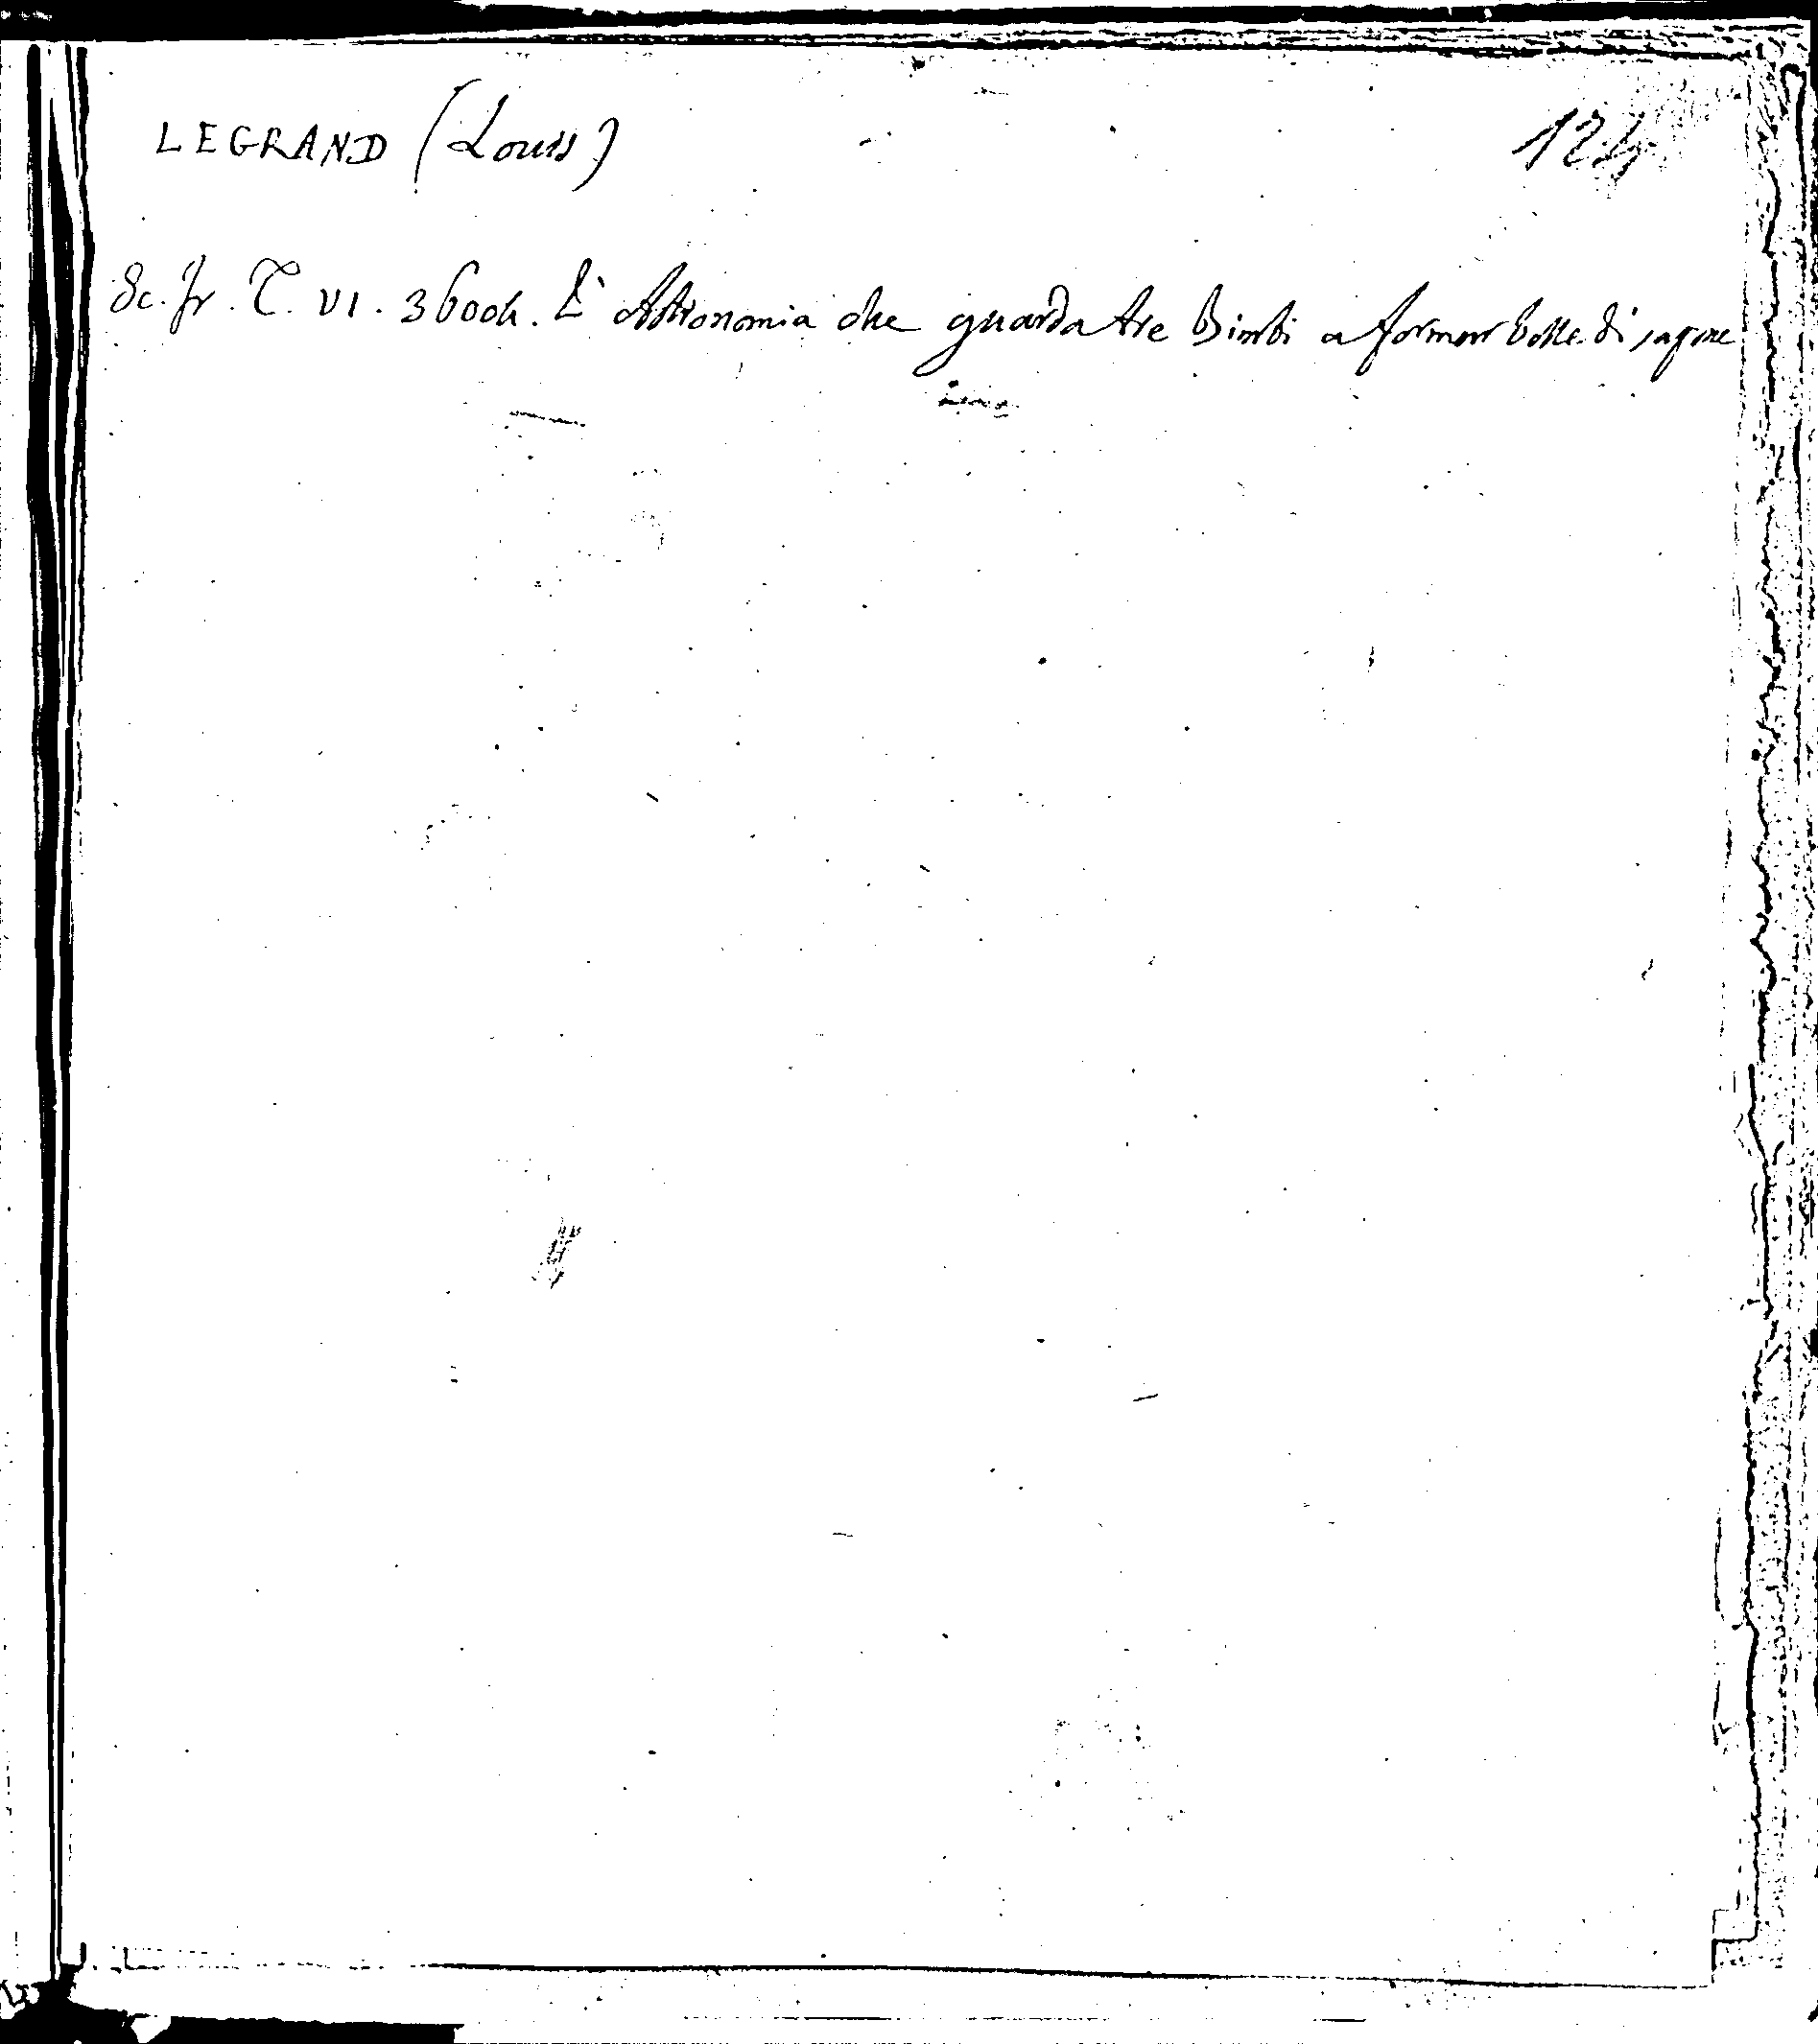 LEGRAND (Louis) 124
Sc. Fr. T. VI. 36004. È Astronomia che guarda tre Bimbi a formar bolle di sapone